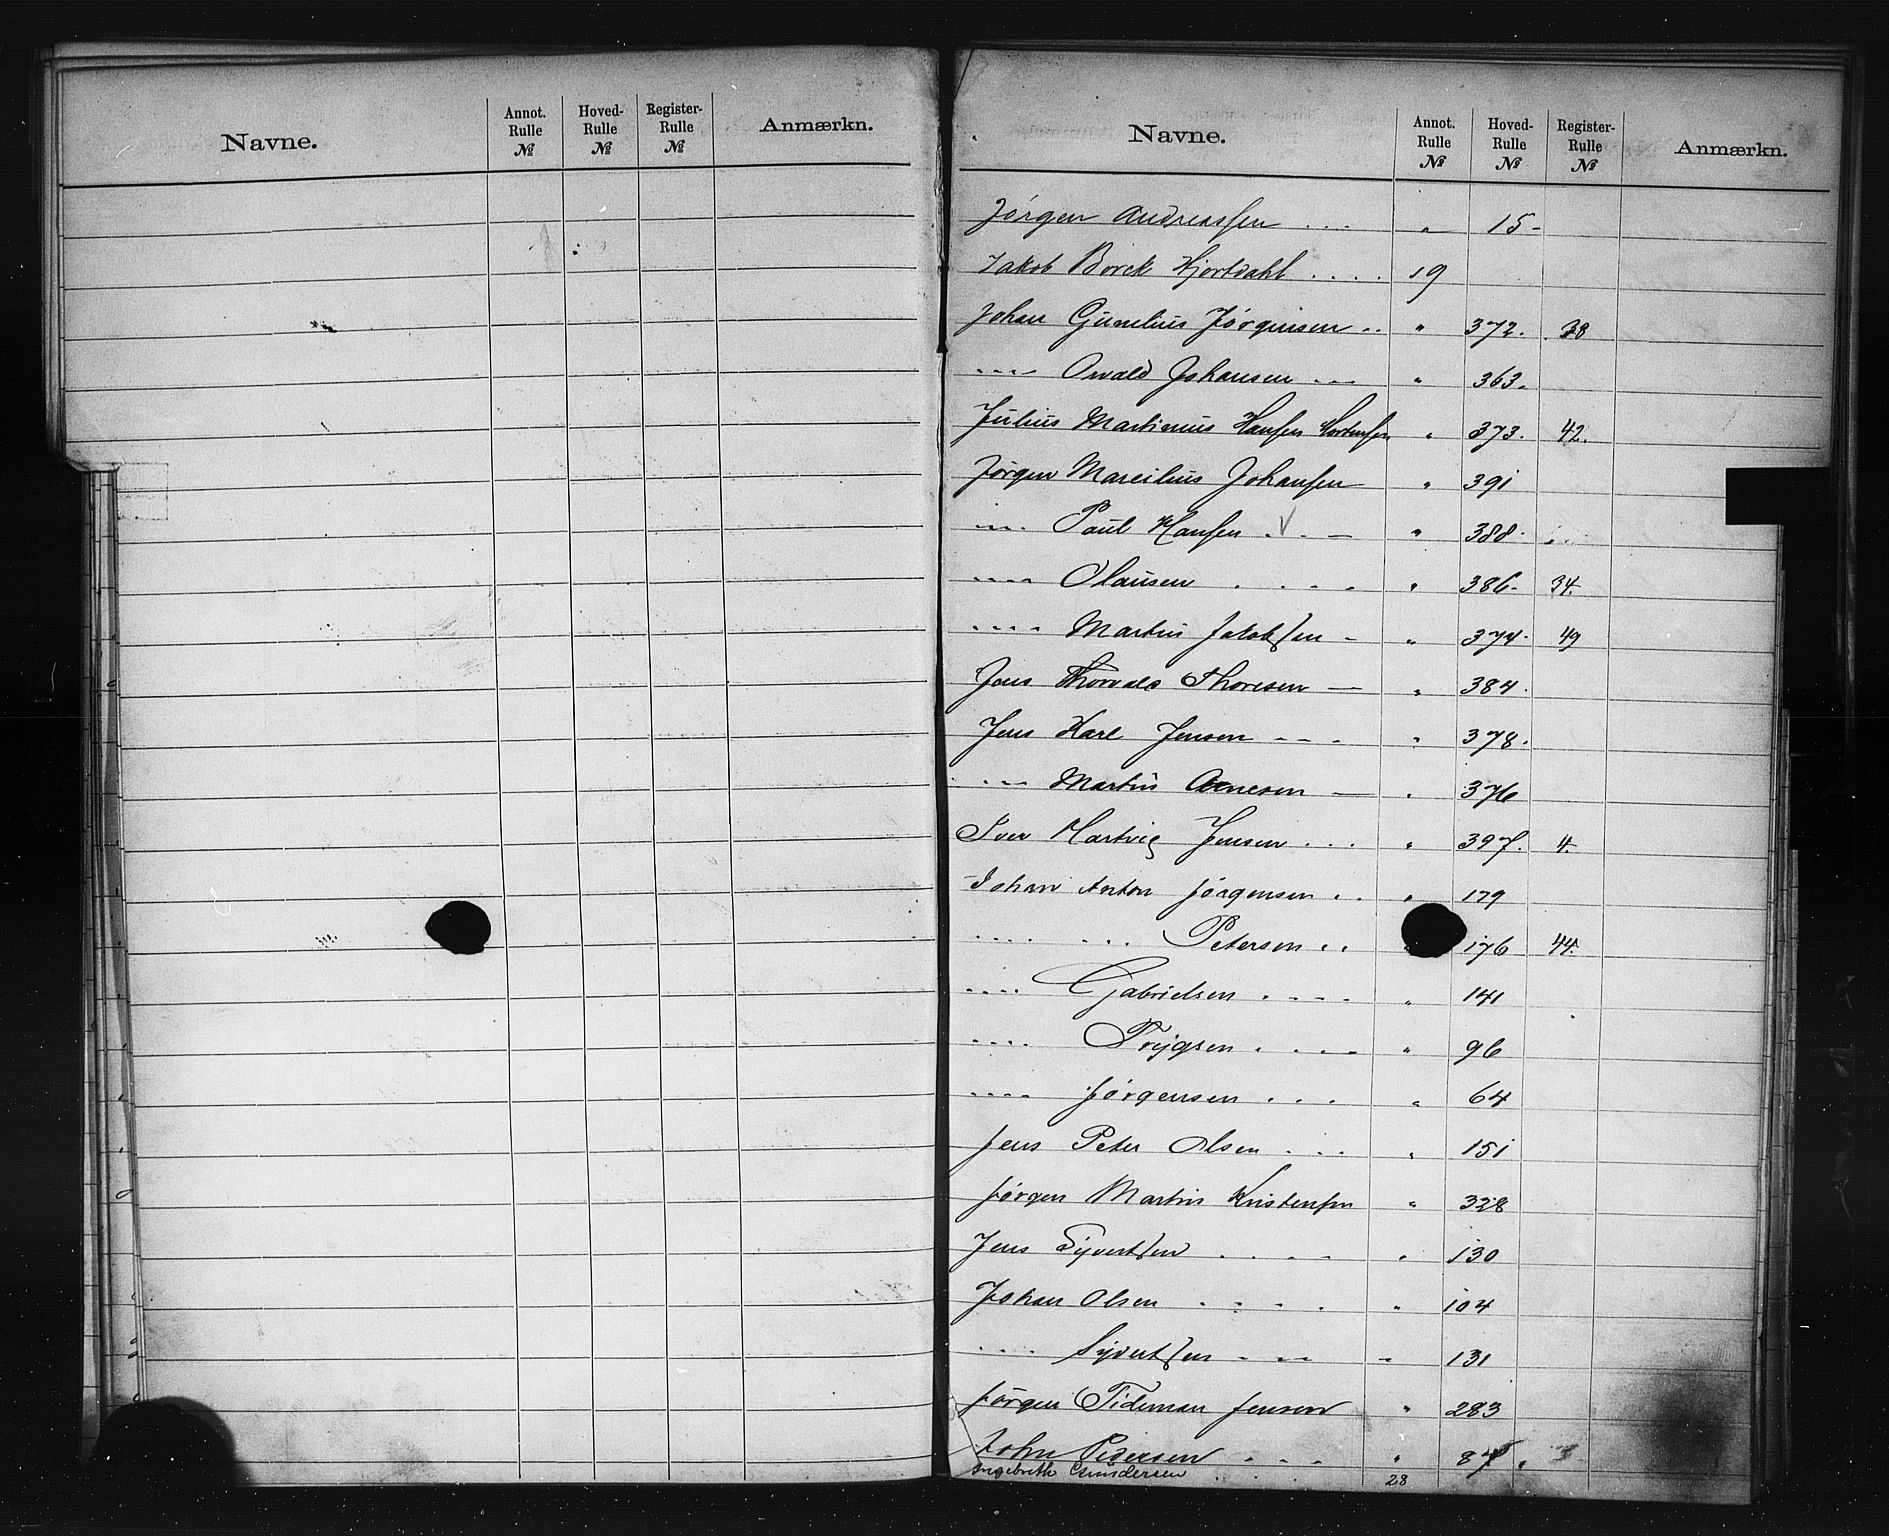 Navne. Annot. Rulle № Hoved-Rulle № Register-Rulle № Anmærkn.
Navne. Annot. Rulle № Hoved-Rulle № Register-Rulle № Anmærkn.
Jörgen Andreassen . . . " 15-
Jakob Borck Hjortdahl . . . . 19
Johan Gunelius Jörgensen . . " 372. 38
---- Osvald Johansen --- " 363.
Julius Martinius Hansen Mortensen " 373. 42.
Jörgen Marcilius Johansen " 391
---- Paul Hansen . V . — " 388.
---- Olausen . . . . " 386- 34.
---- Martin Jakobsen - " 374. 49
Jens Thorvald Thoresen — " 384.
Jens Karl Jensen --- " 378.
---- Martin Arnesen — " 376
Iver Hartvig Jensen . . . " 397. 4.
Johan Anton Jörgensen . . " 179
.... .... Petersen . . " 176 44.
.... Gabrielsen . . . . " 141
.... Trygsen . . . . " 96
.... Jörgensen . . . " 64
Jens Peter Olsen . . . " 151
Jörgen Martin Kristensen " 328
Jens Syvertsen . . . . " 130
Johan Olsen . . . . " 104
.... Syvertsen - -- " 131
Jörgen Tideman Jensen " 283
John Pedersen . . . " 87.
Ingebreth Gundersen . . . 28